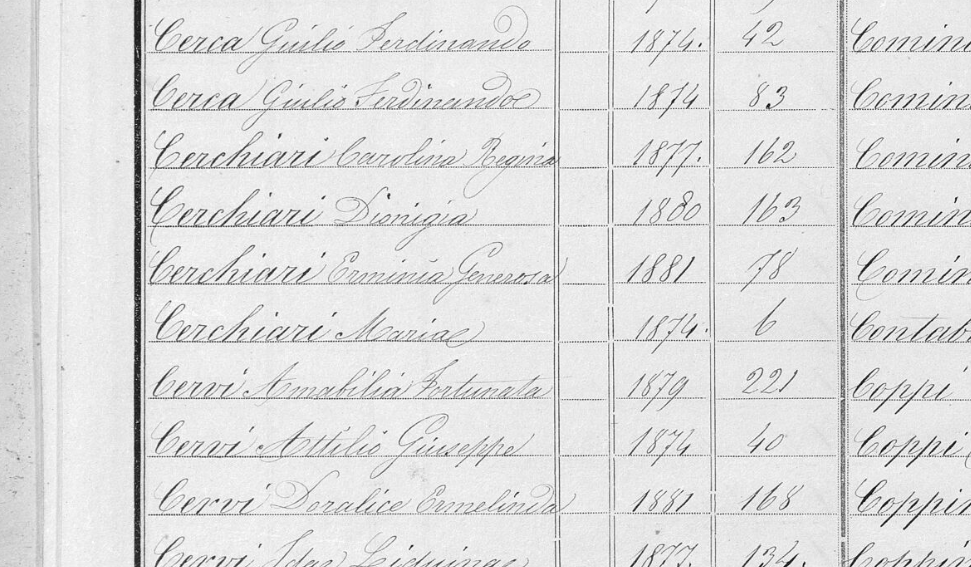 Cerca Giulio Ferdinando 1874. 42 Comin
Cerca Giulio Ferdinando 1874 83 Comin
Cerchiari Carolina Regina 1877. 162 Comin
Cerchiari Dionigia 1880 163 Comin
Cerchiari Erminia Generosa 1881 78 Comin
Cerchiari Maria 1874. 6 Contab
Cervi Amabilia Fortunata 1879 221 Coppi
Cervi Attilio Giuseppe 1874 40 Coppi
Cervi Doralice Ermelinda 1881 168 Coppin
Cervi Ida 1877. 134. Coppin